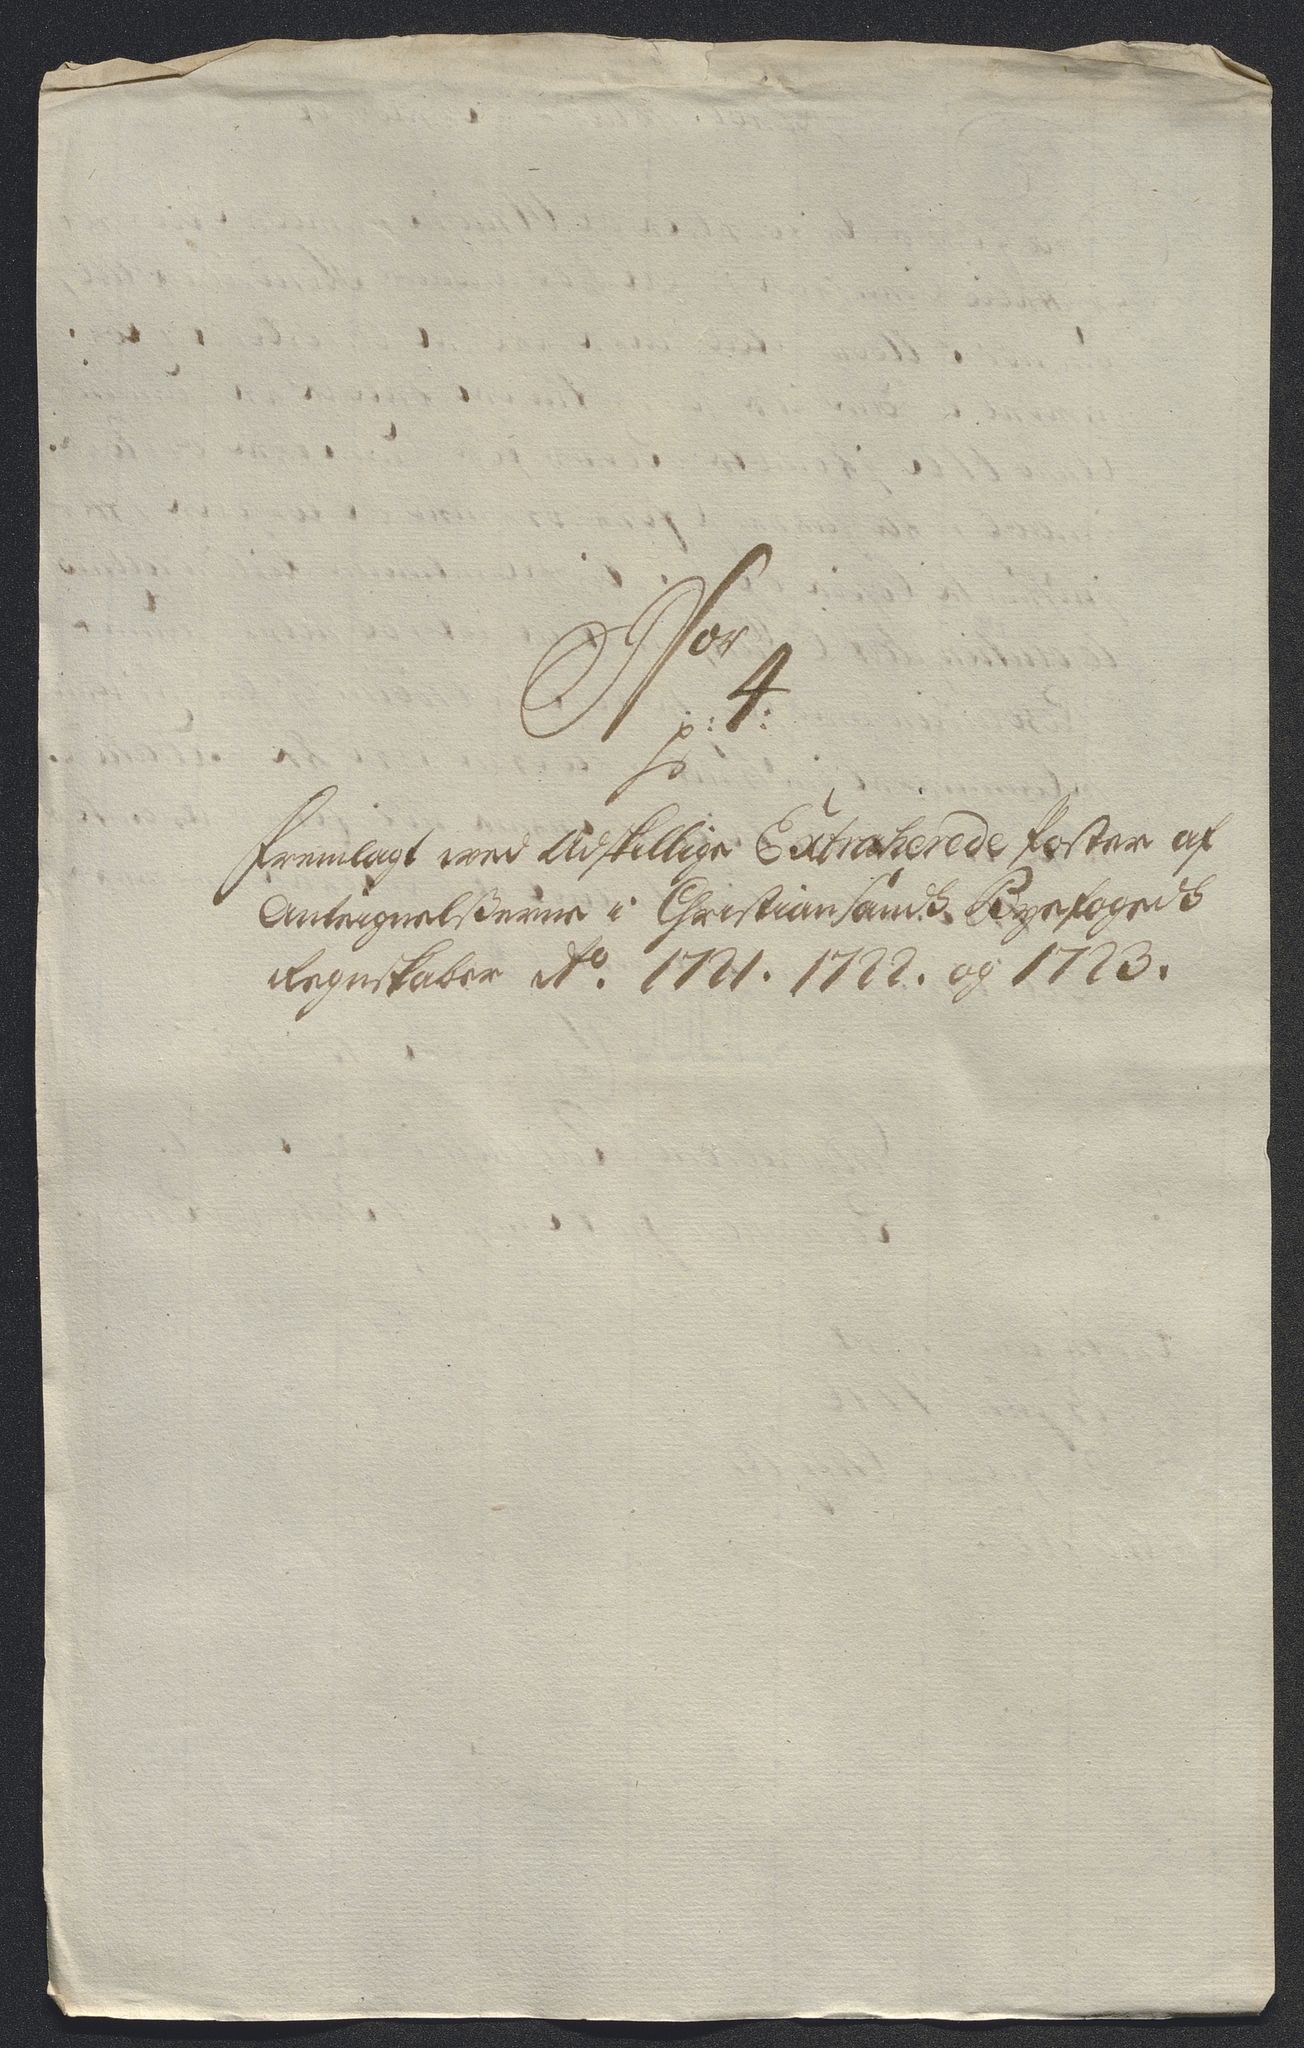 Nor
p: 4:
Fremlagt wed Adskillige Extraherede Poster af
Anteignelßerne i Christiansands Byefogeds
Regnskaber Ao. 1721. 1722. og 1723.